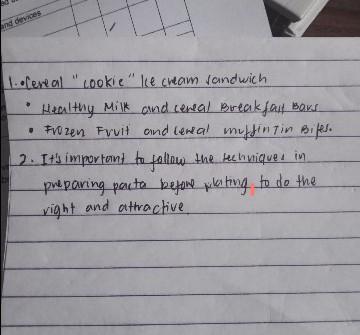 and devices
1. • Cereal "cookie" Ice cream sandwich
• Healthy Milk and cereal Breakfast Bars
• Frozen Fruit and cereal muffin Tin Bites.
2. It's important to follow the techniques in
preparing pasta before plating, to do the
right and attractive.